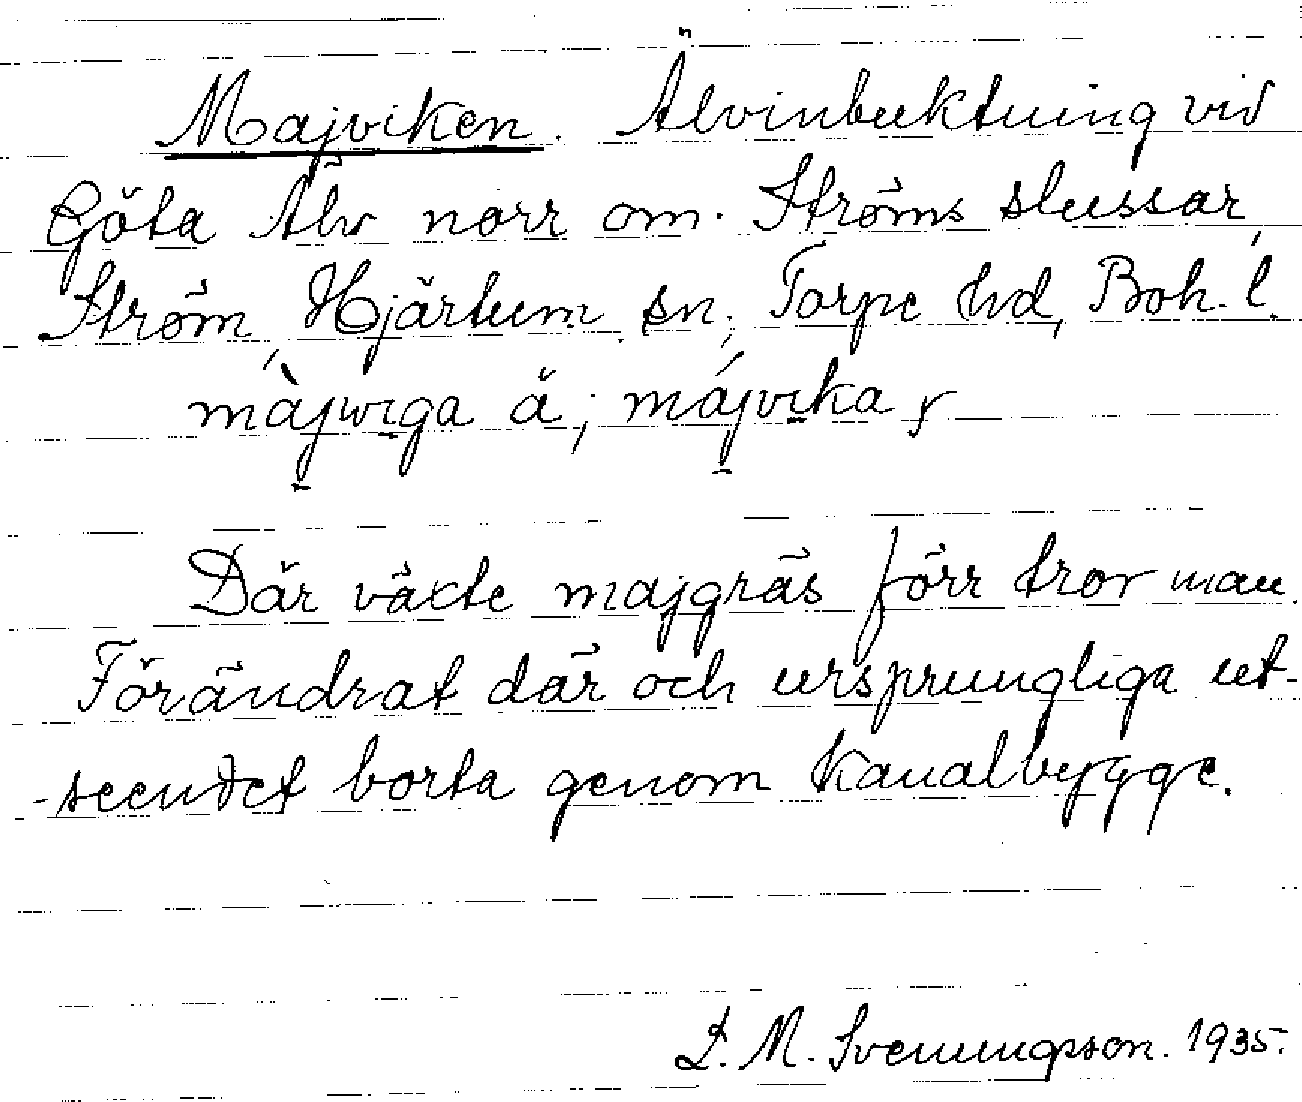 Majviken. Älvinbuktning vid
Göta Älv norr om. Ströms slussar,
Ström, Hjärtum sn, Torpe hd, Boh. l.
màjwiga å; májvika
Där växte majgräs förr tror man.
Förändrat där och ursprungliga ut-
-seendet borta genom kanalbygge.
D. M. Svenungson. 1935.